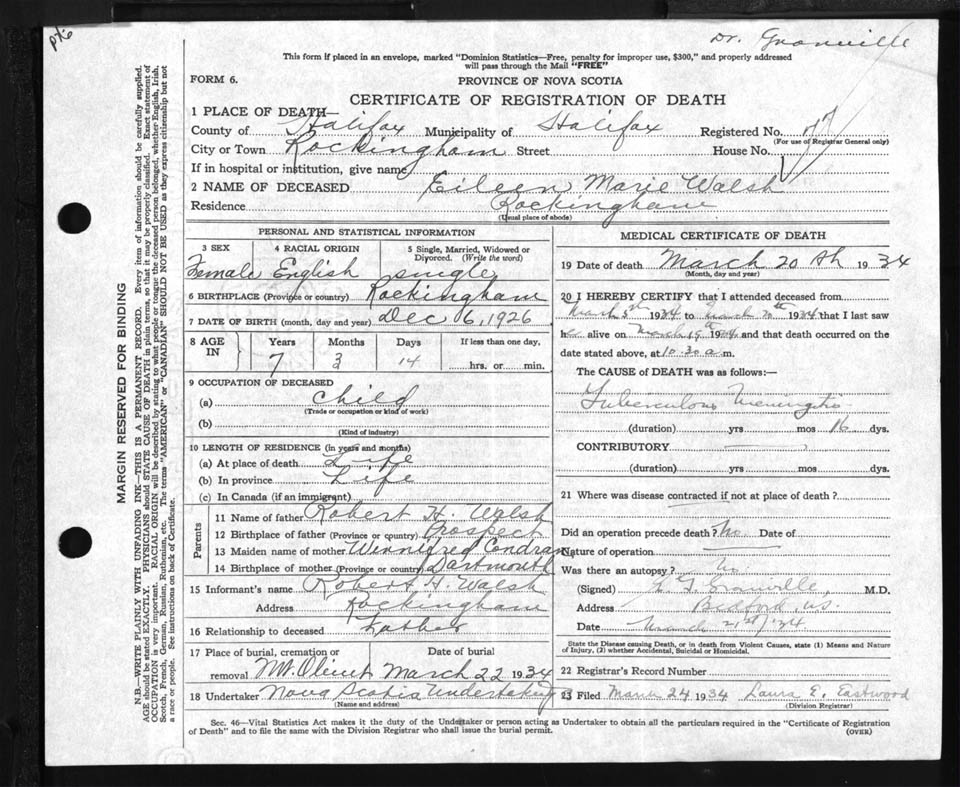 Dr. Granville
This form if placed in an envelope, marked "Dominion Statistics—Free, penalty for improper use, $300," and properly addressed
will pass through the Mail "FREE"
FORM 6.
PROVINCE OF NOVA SCOTIA
CERTIFICATE OF REGISTRATION OF DEATH
1 PLACE OF DEATH—
County of Halifax Municipality of Halifax Registered No. 77
(For use of Registrar General only)
City or Town Rockingham Street House No.
If in hospital or institution, give name
2 NAME OF DECEASED Eileen Marie Walsh
Residence Rockingham
(Usual place of abode)
PERSONAL AND STATISTICAL INFORMATION
3 SEX 4 RACIAL ORIGIN 5 Single, Married, Widowed or Divorced. (Write the word)
Female English single
6 BIRTHPLACE (Province or country) Rockingham
7 DATE OF BIRTH (month, day and year) Dec 6, 1926
8 AGE IN Years Months Days If less than one day,
7 3 14 hrs. or min.
9 OCCUPATION OF DECEASED
(a) Child
(Trade or occupation or kind of work)
(b)
(Kind of industry)
10 LENGTH OF RESIDENCE (in years and months)
(a) At place of death Life
(b) In province Life
(c) In Canada (if an immigrant)
Parents
11 Name of father Robert H. Walsh
12 Birthplace of father (Province or country) Prospect
13 Maiden name of mother Winnifred Condran
14 Birthplace of mother (Province or country) Dartmouth
15 Informant's name Robert H. Walsh
Address Rockingham
16 Relationship to deceased Father
17 Place of burial, cremation or removal Date of burial
Mt. Olivet March 22 1934
18 Undertaker Nova Scotia Undertaking
(Name and address)
MEDICAL CERTIFICATE OF DEATH
19 Date of death March 20th 1934
(Month, day and year)
20 I HEREBY CERTIFY that I attended deceased from
March 5th 1934 to March 20th 1934 that I last saw
h alive on March 19th 1934 and that death occurred on
date stated above, at 10.30 a.m.
The CAUSE of DEATH was as follows:—
Tuberculous Meningitis
(duration) yrs mos 16 dys.
CONTRIBUTORY
(duration) yrs. mos. dys.
21 Where was disease contracted if not at place of death?
Did an operation precede death? No. Date of
Nature of operation
Was there an autopsy? No.
(Signed) Granville, M.D.
Address Bedford, N.S.
Date March 21st/34
State the Disease causing Death, or in death from Violent Causes, state (1) Means and Nature
of Injury, (2) whether Accidental, Suicidal or Homicidal.
22 Registrar's Record Number
23 Filed March 24 1934 Laura E. Eastwood
(Division Registrar)
Sec. 46—Vital Statistics Act makes it the duty of the Undertaker or person acting as Undertaker to obtain all the particulars required in the "Certificate of Registration
of Death" and to file the same with the Division Registrar who shall issue the burial permit.
(OVER)
MARGIN RESERVED FOR BINDING
N.B.—WRITE PLAINLY WITH UNFADING INK—THIS IS A PERMANENT RECORD. Every item of information should be carefully supplied.
AGE should be stated EXACTLY. PHYSICIANS should STATE CAUSE OF DEATH in plain terms, so that it may be properly classified. Exact statement of
OCCUPATION is very important. RACIAL ORIGIN will be described by stating to what people or tongue the deceased person belonged, whether English, Irish,
Scotch, French, German, Russian, Ruthenian, etc. The terms "AMERICAN" or "CANADIAN" SHOULD NOT BE USED as they express citizenship but not
a race or people. See instructions on back of Certificate.